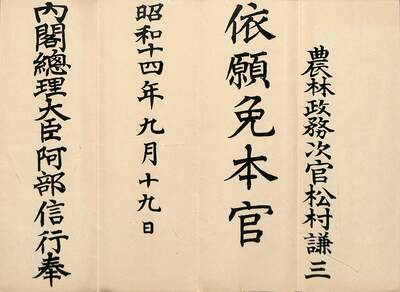 農林政務次官松村謙三
依願免本官
昭和十四年九月十九日
內閣總理大臣阿部信行奉